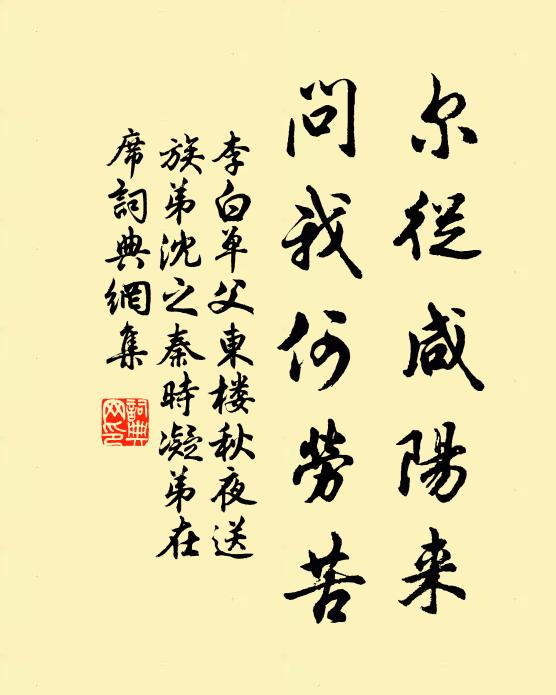 尔從咸陽来
問我何勞苦
李白单父東楼秋夜送
族弟沈之秦時凝弟在
席詞典網集
詞典網印